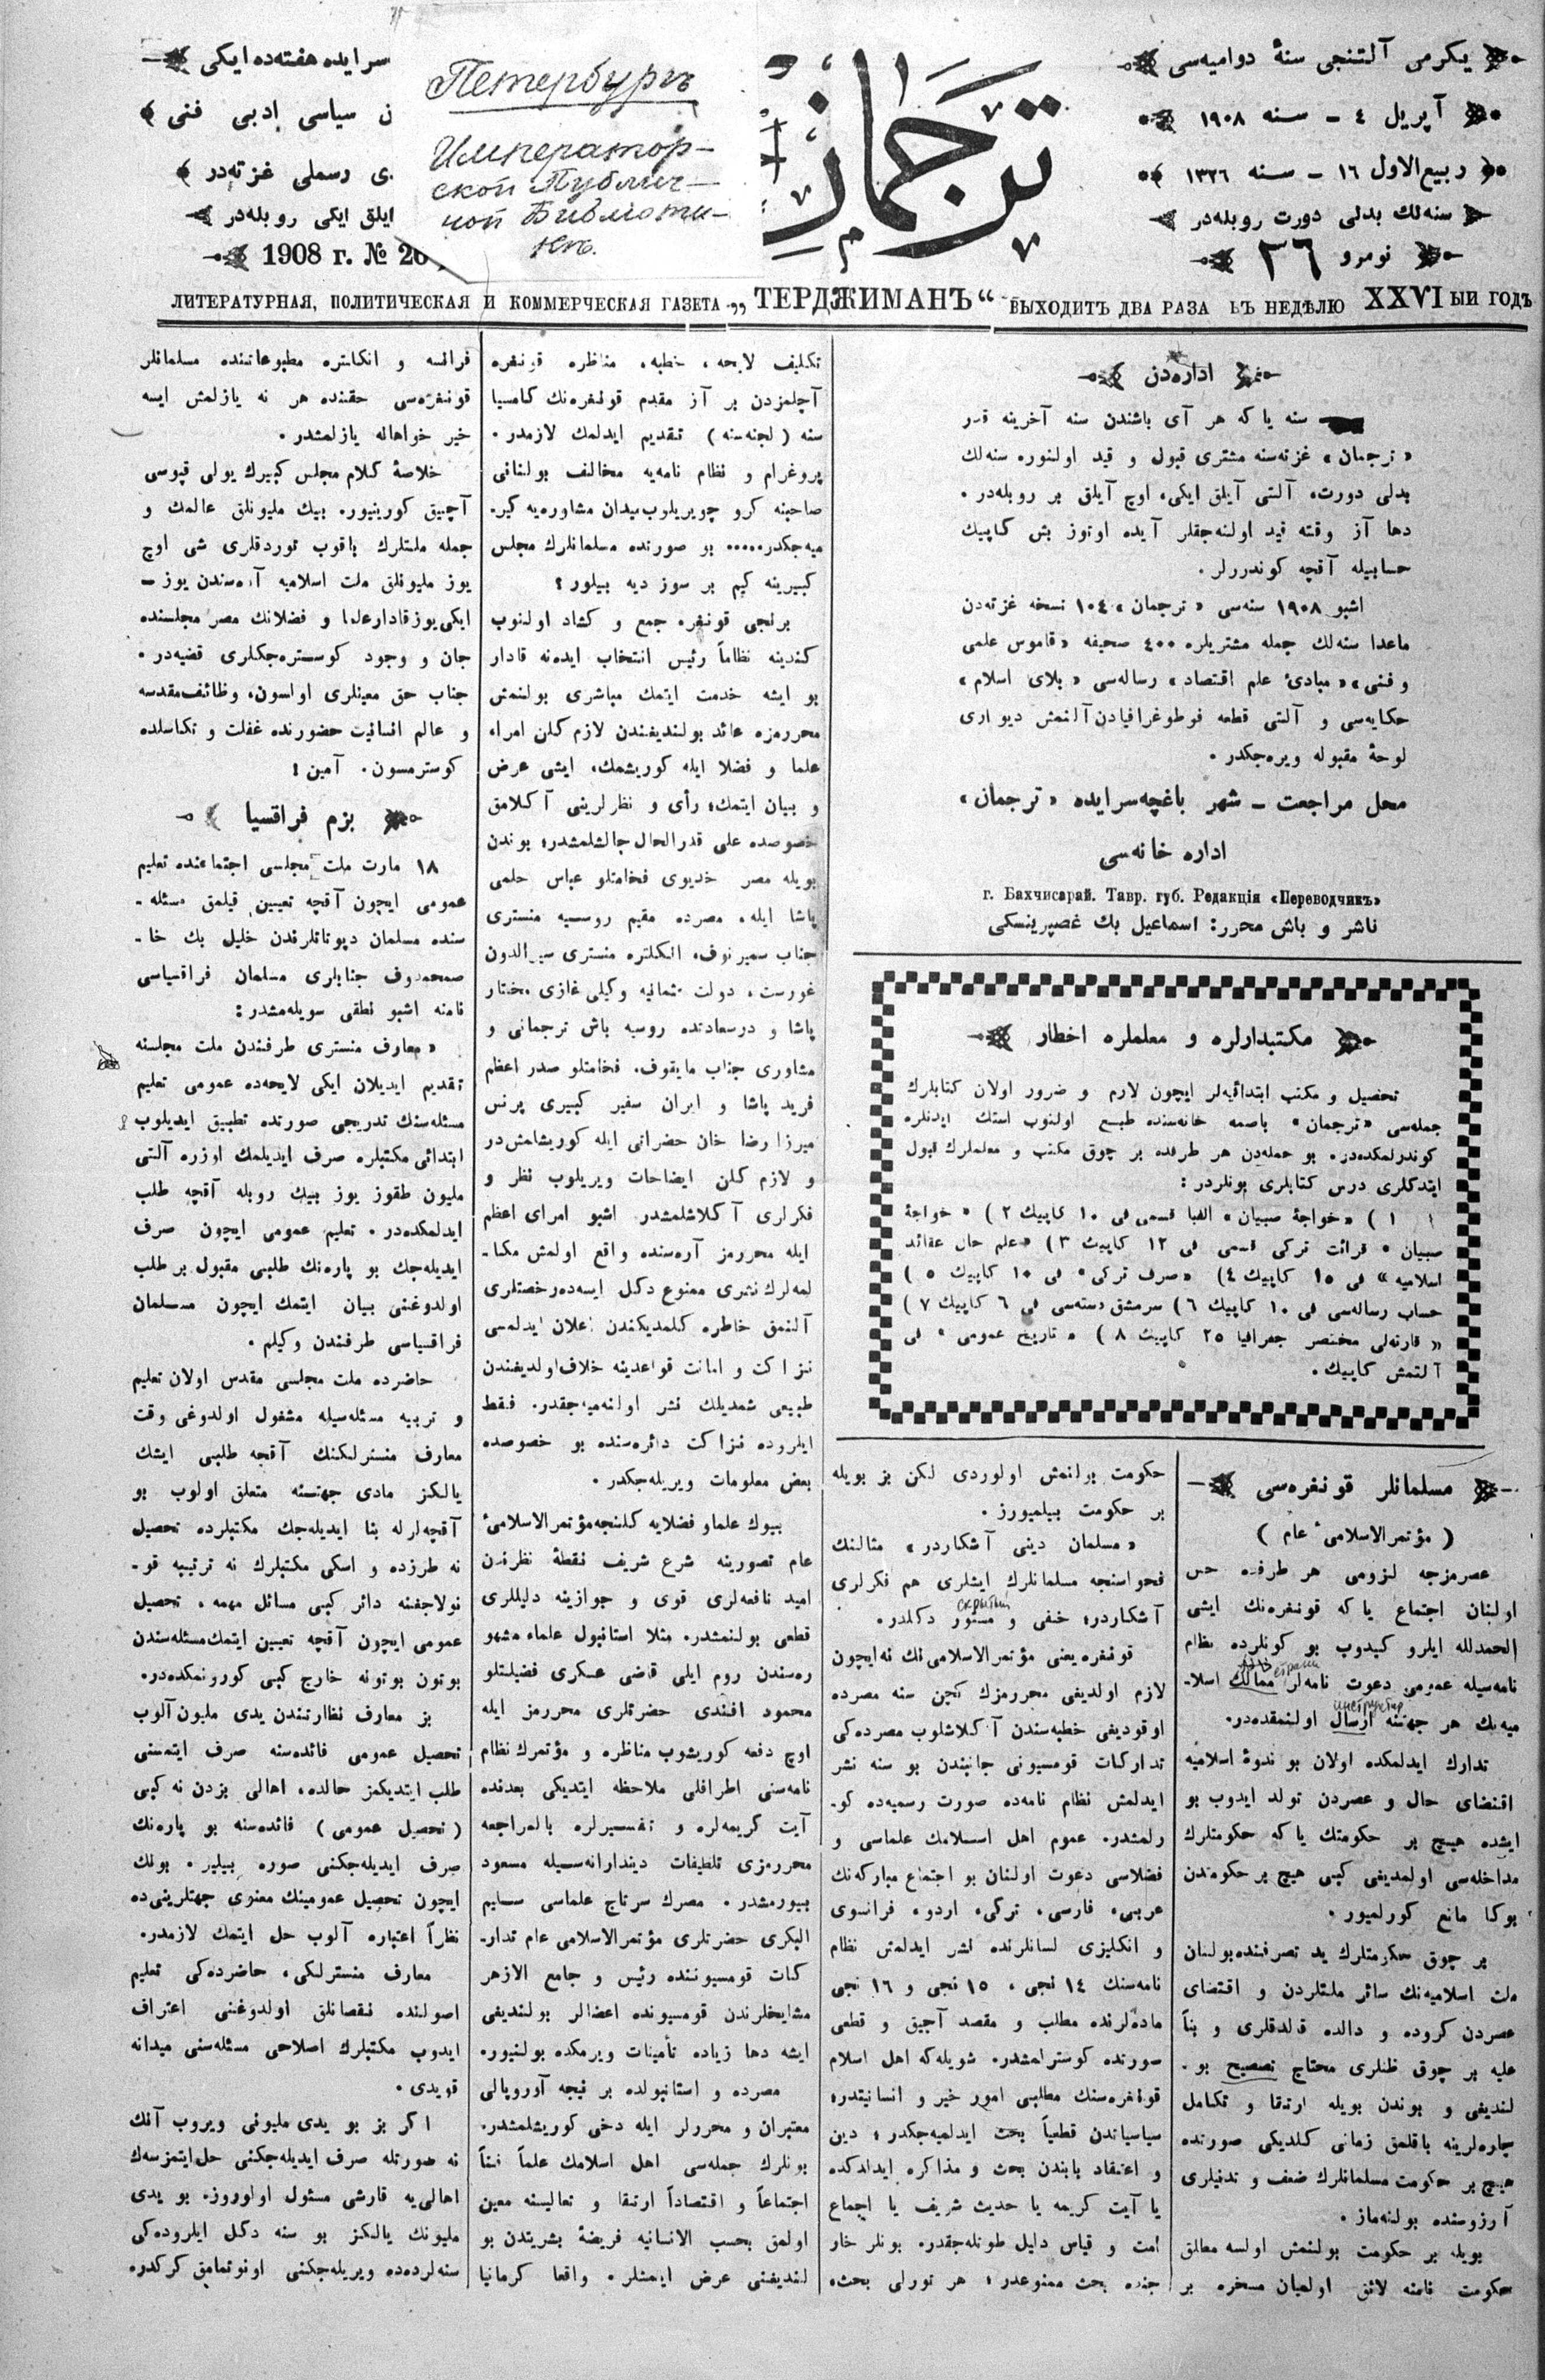 یکرمی آلتنجی سنهٔ دوامیه‌سی
آپریل ٤ ـ سنه ١٩٠٨
ربیع‌الاول ١٦ ـ سنه ١٣٢٦
سنه‌لك بدلی دورت روبله‌در
نومرو ٣٦
ترجمان
Петербургъ
Император-
ской Публич-
ной Библиоте-
кѣ.
سرایده هفته‌ده ایکی
ن سیاسی ادبی فنی
ی رسملی غزته‌در
ایلق ایکی روبله‌در
1908 г. № 26
ЛИТЕРАТУРНАЯ, ПОЛИТИЧЕСКАЯ И КОММЕРЧЕСКАЯ ГАЗЕТА „ТЕРДЖИМАНЪ“ ВЫХОДИТЪ ДВА РАЗА ВЪ НЕДѢЛЮ XXVI ЫЙ ГОДЪ
اداره‌دن
سنه یا که هر آی باشندن سنه آخرینه قدر
«ترجمان» غزته‌سنه مشتری قبول و قید اولنوره سنه‌لك
بدلی دورت، آلتی آیلق ایکی، اوچ آیلق بر روبله‌در.
دها آز وقته قید اولنه‌جقلر آیده اوتوز بش کاپیك
حسابیله آقچه کوندررلر.
اشبو ١٩٠٨ سنه‌سی «ترجمان» ١٠٤ نسخه غزته‌دن
ماعدا سنه‌لك جمله مشتریلره ٤٠٠ صحیفه «قاموس علمی
و فنی» «مبادئ علم اقتصاد» رساله‌سی «بلای اسلام»
حکایه‌سی و آلتی قطعه فوطوغرافیادن آلنمش دیواری
لوحهٔ مقبوله ویره‌جکدر.
محل مراجعت ـ شهر باغچه‌سرایده «ترجمان»
اداره خانه‌سی
г. Бахчисарай. Тавр. губ. Редакція «Переводчикъ»
ناشر و باش محرر: اسماعیل بك غصپرینسکی
مکتبدارلره و معلملره اخطار
تحصیل و مکتب ابتدائیه‌لر ایچون لازم و ضرور اولان کتابلرك
جمله‌سی «ترجمان» باصمه خانه‌سنده طبع اولنوب استك ایدنلره
کوندرلمکده‌در. بو جمله‌دن هر طرفده بر چوق مکتب و معلملرك قبول
ایتدکلری درس کتابلری بونلردر:
١) «خواجهٔ صبیان» الفبا قسمی فی ١٠ کاپیك ٢) «خواجهٔ
صبیان» قرائت ترکی قسمی فی ١٢ کاپیك ٣) «علم حال عقائد
اسلامیه» فی ١٥ کاپیك ٤) «صرف ترکی» فی ١٠ کاپیك ٥)
حساب رساله‌سی فی ١٠ کاپیك ٦) سرمشق دسته‌سی فی ٦ کاپیك ٧)
«قارته‌لی مختصر جغرافیا ٢٥ کاپیك ٨) «تاریخ عمومی» فی
آلتمش کاپیك.
مسلمانلر قونغره‌سی
(مؤتمر الاسلامی عام)
عصرمزجه لزومی هر طرفده حس
اولنان اجتماع یا که قونغره‌نك ایشی
الحمدلله ایلرو کیدوب بو کونلرده نظام
نامه‌سیله عمومی دعوت نامه‌لر ممالك اسلا-
میه‌نك هر جهتنه ارسال اولنمقده‌در.
تدارك ایدلمکده اولان بو ندوهٔ اسلامیه
اقتضای حال و عصردن تولد ایدوب بو
ایشده هیچ بر حکومتك یا که حکومتلرك
مداخله‌سی اولمدیغی کبی هیچ بر حکومتدن
بوکا مانع کورلمیور.
بر چوق حکومتلرك ید تصرفنده بولنان
ملت اسلامیه‌نك سائر ملتلردن و اقتضای
عصردن کروده و دالده قالدقلری و بنأ
علیه بر چوق ظنلری محتاج تصحیح بو-
لندیغی و بوندن بویله ارتقا و تکامل
چاره‌لرینه باقلمق زمانی کلدیکی صورتده
هیچ بر حکومت مسلمانلرك ضعف و تدنیلری
آرزوسنده بولنه‌ماز.
بویله بر حکومت بولنمش اولسه مطلق
حکومت نامنه لائق اولمیان مسخره بر
حکومت بولنمش اولوردی لکن بز بویله
بر حکومت بیلمیورز.
«مسلمان دینی آشکاردر» مثالنك
فحواسنجه مسلمانلرك ایشلری هم فکرلری
آشکاردر؛ خفی و مستور دکلدر.
قونغره یعنی مؤتمر الاسلامی نك نه ایچون
لازم اولدیغی محررمزك کچن سنه مصرده
اوقودیغی خطبه‌سندن آکلاشلوب مصرده‌کی
تدارکات قومسیونی جانبندن بو سنه نشر
ایدلمش نظام نامه‌ده صورت رسمیه‌ده کو-
رلمشدر. عموم اهل اسلامك علماسی و
فضلاسی دعوت اولنان بو اجتماع مبارکه‌نك
عربی، فارسی، ترکی، اردو، فرانسوی
و انکلیزی لسانلرنده نشر ایدلمش نظام
نامه‌سنك ١٤ نجی، ١٥ نجی و ١٦ نجی
ماده‌لرنده مطلب و مقصد آچیق و قطعی
صورتده کوسترلمشدر. شویله که اهل اسلام
قونغره‌سنك مطلبی امور خیر و انسانیتدر؛
سیاسیاتدن قطعیاً بحث ایدلمیه‌جکدر؛ دین
و اعتقاد بابندن بحث و مذاکره ایدلدکده
یا آیت کریمه یا حدیث شریف یا اجماع
امت و قیاس دلیل طوتله‌جقدر. بونلر خار
جنده بحث ممنوعدر؛ هر تورلی بحث،
تکلیف لایحه، خطبه، مناظره قونغره
آچلمزدن بر آز مقدم قونغره‌نك کامسیا
سنه (لجنه‌سنه) تقدیم ایدلمك لازمدر.
پروغرام و نظام نامه‌یه مخالف بولنانی
صاحبنه کرو چویریلوب میدان مشاوره‌یه کیر-
میه‌جکدر..... بو صورتده مسلمانلرك مجلس
کبیرینه کیم بر سوز دیه بیلور؟
برنجی قونغره جمع و کشاد اولنوب
کندینه نظاماً رئیس انتخاب ایده‌نه قادار
بو ایشه خدمت ایتمك مباشری بولنمش
محررمزه عائد بولندیغندن لازم کلن امرا،
علما و فضلا ایله کوریشمك، ایشی عرض
و بیان ایتمك؛ رأی و نظرلرینی آکلامق
خصوصده علی قدرالحال چالشلمشدر؛ بوندن
بویله مصر خدیوی فخامتلو عباس حلمی
پاشا ایله، مصرده مقیم روسیه منستری
جناب سمیرنوف، انکلتره منستری سیر الدون
غورست، دولت عثمانیه وکیلی غازی مختار
پاشا و درسعادتده روسیه باش ترجمانی و
مشاوری جناب مایقوف، فخامتلو صدر اعظم
فرید پاشا و ایران سفیر کبیری پرنس
میرزا رضا خان حضراتی ایله کوریشلمش‌در
و لازم کلن ایضاحات ویریلوب نظر و
فکرلری آکلاشلمشدر. اشبو امرای اعظم
ایله محررمز آره‌سنده واقع اولمش مکا-
لمه‌لرك نشری ممنوع دکل ایسه‌ده رخصتلری
آلنمق خاطره کلمدیکندن اعلان ایدلمسی
نزاکت و امانت قواعدینه خلاف اولدیغندن
طبیعی شمدیلك نشر اولنه‌میه‌جقدر. فقط
ایلروده نزاکت دائره‌سنده بو خصوصده
بعض معلومات ویریله‌جکدر.
بیوك علما و فضلایه کلنجه مؤتمر الاسلامیٔ
عام تصورینه شرع شریف نقطهٔ نظرندن
امید نافعه‌لری قوی و جوازینه دلیللری
قطعی بولنمشدر. مثلا استانبول علماء مشهو
ره‌سندن روم ایلی قاضی عسکری فضیلتلو
محمود افندی حضرتلری محررمز ایله
اوچ دفعه کوریشوب مناظره و مؤتمرك نظام
نامه‌سنی اطرافلی ملاحظه ایتدیکی بعدنده
آیت کریمه‌لره و تفسیرلره بالمراجعه
محررمزی تلطیفات دیندارانه‌سیله مسعود
بیورمشدر. مصرك سرتاج علماسی سلیم
البکری حضرتلری مؤتمر الاسلامی عام تدار-
کات قومسیوننده رئیس و جامع الازهر
مشایخلرندن قومسیونده اعضالر بولندیغی
ایشه دها زیاده تأمینات ویرمکده بولنیور.
مصرده و استانبولده بر نیجه آوروپالی
معتبران و محررلر ایله دخی کوریشلمشدر.
بونلرك جمله‌سی اهل اسلامك علماً فنأ
اجتماعاً و اقتصاداً ارتقا و تعالیسنه معین
اولمق بحسب الانسانیه فریضهٔ بشریتدن بو
لندیغنی عرض ایتمشلر. واقعا کرمانیا
فرانسه و انکلتره مطبوعاتنده مسلمانلر
قونغره‌سی حقنده هر نه یازلمش ایسه
خیر خواهاله یازلمشدر.
خلاصهٔ کلام مجلس کبیرك یولی قپوسی
آچیق کورینیور. بیك ملیونلق عالمك و
جمله ملتلرك باقوب توردقلری شی اوچ
یوز ملیونلق ملت اسلامیه آره‌سندن یوز ـ
ایکی یوز قادار علما و فضلانك مصر مجلسنده
جان و وجود کوستره‌جکلری قضیه‌در.
جناب حق معینلری اولسون، وظائف مقدسه
و عالم انسانیت حضورنده غفلت و تکاسلده
کوسترمسون. آمین!
بزم فراقسیا
١٨ مارت ملت مجلسی اجتماعنده تعلیم
عمومی ایچون آقچه تعیین قیلمق مسئله-
سنده مسلمان دپوتاتلرندن خلیل بك خا-
صمحمدوف جنابلری مسلمان فراقسیاسی
نامنه اشبو نطقی سویله‌مشدر:
«معارف منستری طرفندن ملت مجلسنه
تقدیم ایدیلان ایکی لایحه‌ده عمومی تعلیم
مسئله‌سنك تدریجی صورتده تطبیق ایدیلوب
ابتدائی مکتبلره صرف ایدیلمك اوزره آلتی
ملیون طقوز یوز بیك روبله آقچه طلب
ایدلمکده‌در. تعلیم عمومی ایچون صرف
ایدیله‌جك بو پاره‌نك طلبی مقبول بر طلب
اولدوغنی بیان ایتمك ایچون مسلمان
فراقسیاسی طرفندن وکیلم.
حاضرده ملت مجلسی مقدس اولان تعلیم
و تربیه مسئله‌سیله مشغول اولدوغی وقت
معارف منسترلکنك آقچه طلبی ایشك
یالکز مادی جهتنه متعلق اولوب بو
آقچه‌لر له بنا ایدیله‌جك مکتبلرده تحصیل
نه طرزده و اسکی مکتبلرك نه ترتیبه قو-
نولاجغنه دائر کبی مسائل مهمه، تحصیل
عمومی ایچون آقچه تعیین ایتمك مسئله‌سندن
بوتون بوتونه خارج کبی کورونمکده‌در.
بز معارف نظارتندن یدی ملیون آلوب
تحصیل عمومی فائده‌سنه صرف ایتمسنی
طلب ایتدیکمز حالده، اهالی بزدن نه کبی
(تحصیل عمومی) فائده‌سنه بو پاره‌نك
صرف ایدیله‌جکنی صوره بیلیر. بونك
ایچون تحصیل عمومینك معنوی جهتلرینی‌ده
نظرأ اعتباره آلوب حل ایتمك لازمدر.
معارف منسترلکی، حاضرده‌کی تعلیم
اصولنده نقصانلق اولدوغنی اعتراف
ایدوب مکتبلرك اصلاحی مسئله‌سنی میدانه
قویدی.
اکر بز بو یدی ملیونی ویروب آنك
نه صورتله صرف ایدیله‌جکنی حل ایتمزسه‌ك
اهالی‌یه قارشی مسئول اولوروز. بو یدی
ملیونك یالکز بو سنه دکل ایلروده‌کی
سنه‌لرده‌ده ویریله‌جکنی اونوتمامق کرکدر.